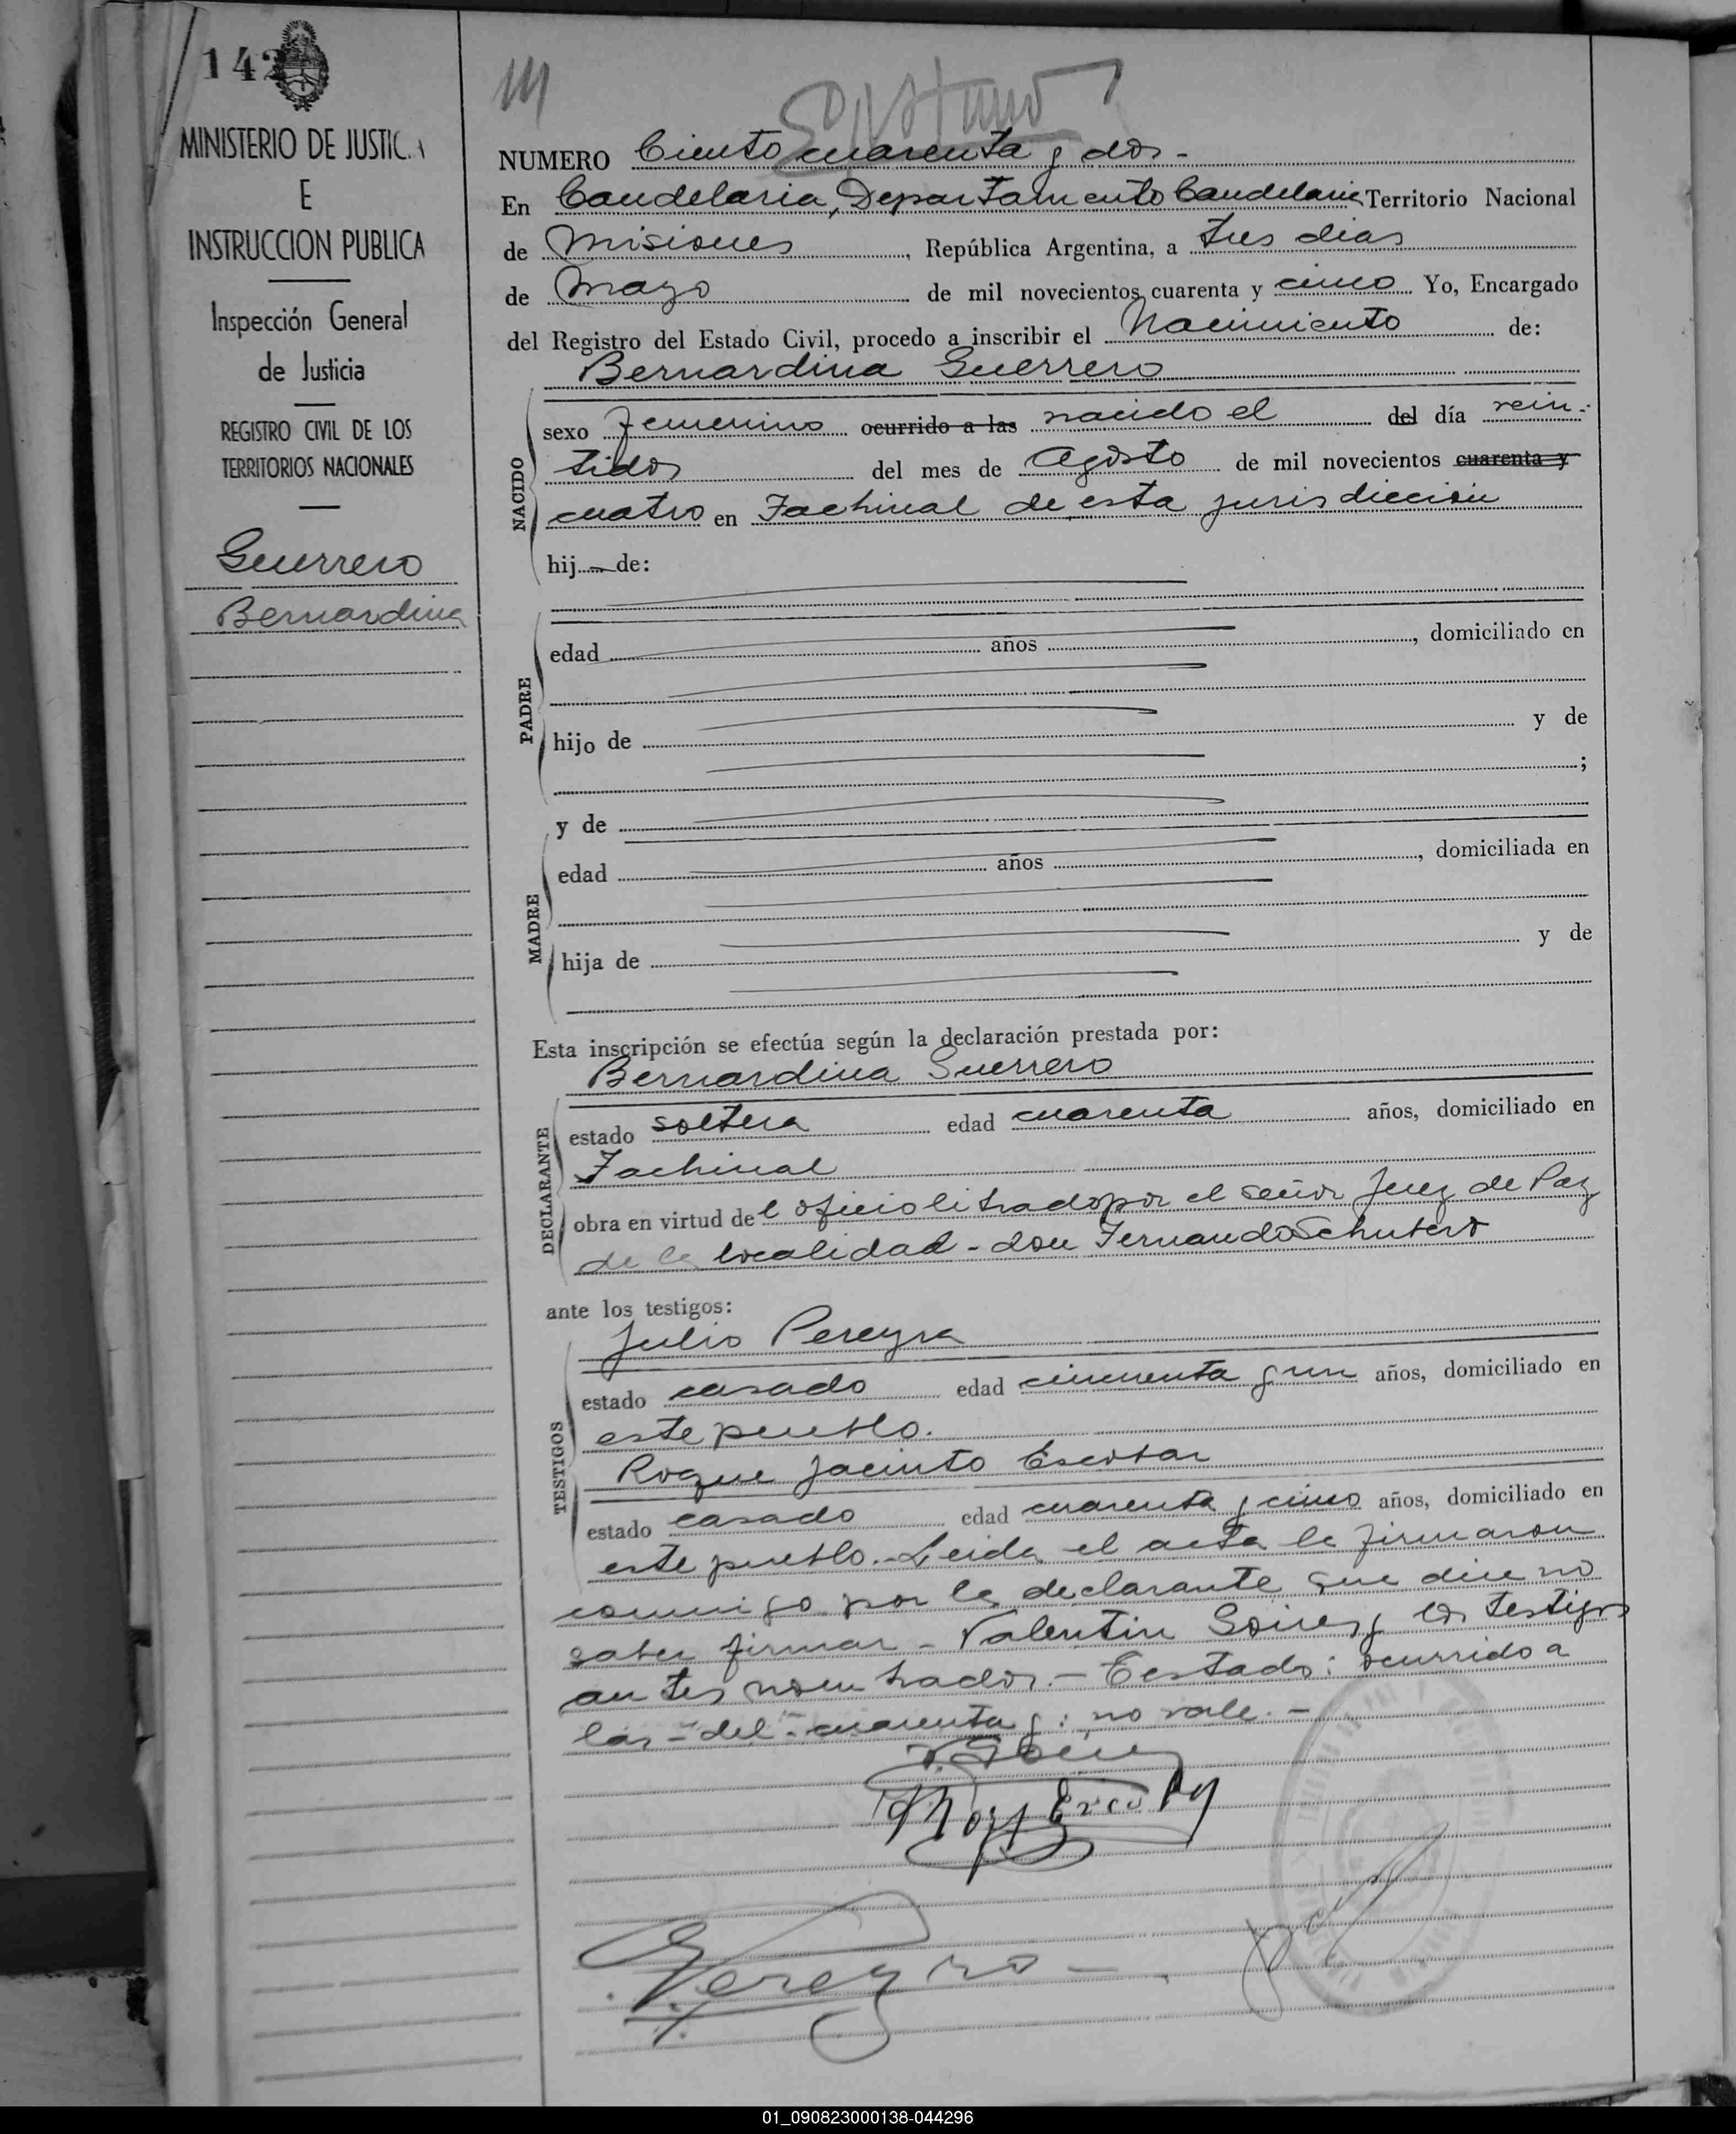 142
MINISTERIO DE JUSTICIA
E
INSTRUCCION PUBLICA
Inspección General
de Justicia
REGISTRO CIVIL DE LOS
TERRITORIOS NACIONALES
Guerrero
Bernardina
NUMERO Ciento cuarenta y dos.-
En Candelaria, Departamento Candelaria Territorio Nacional
de Misiones, República Argentina, a tres dias
de Mayo de mil novecientos cuarenta y cinco Yo, Encargado
del Registro del Estado Civil, procedo a inscribir el Nacimiento de:
Bernardina Guerrero
NACIDO
sexo femenino ocurrido a las nacido el del día vein-
tidos del mes de Agosto de mil novecientos cuarenta y
cuatro en Fachinal de esta jurisdiccion
hij de:
PADRE
edad años, domiciliado en
hijo de y de
;
y de
MADRE
edad años, domiciliada en
hija de y de
Esta inscripción se efectúa según la declaración prestada por:
Bernardina Guerrero
DECLARANTE
estado soltera edad cuarenta años, domiciliado en
Fachinal
obra en virtud del oficio librado por el señor Juez de Paz
de la localidad - don Fernando Schubert
ante los testigos:
Julio Pereyra
TESTIGOS
estado casado edad cincuenta y un años, domiciliado en
este pueblo.
Roque Jacinto Escobar
estado casado edad cuarenta y cinco años, domiciliado en
este pueblo.- Leida el acta la firmaron
conmigo por la declarante que dice no
saber firmar - Valentin Goires y los testigos
antes nombrados.- Testado: ocurrido a
las - del - cuarenta y: no vale.-
01_090823000138-044296